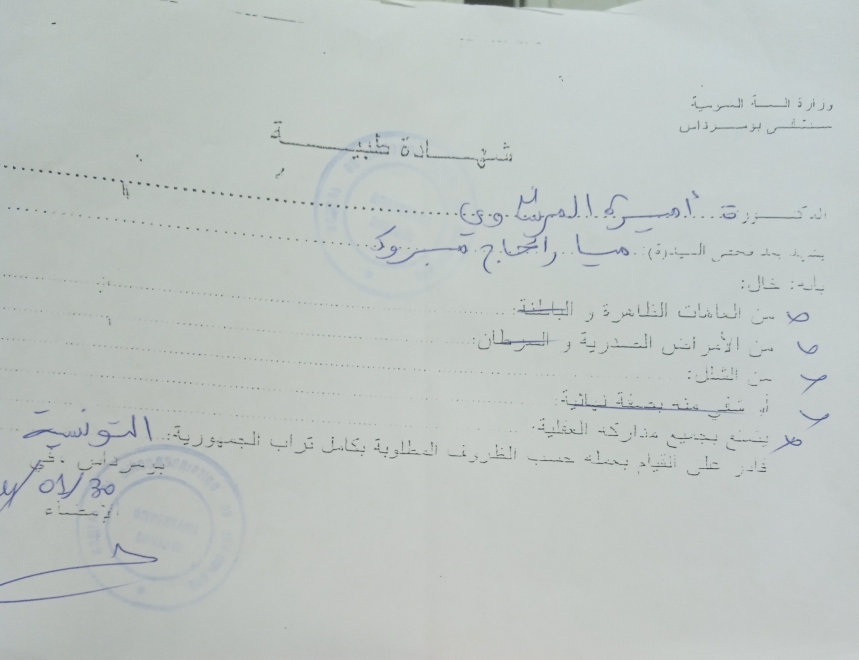 وزارة الصحة العمومية
مستشفى بومرداس
شهادة طبية
الدكتورة أميرة
يشهد بعد فحص السيد(ة): ميار الحاج مبروك
بأنه: خال:
من العاهات الظاهرة و الباطنة:
من الأمراض الصدرية و السرطان:
من الشلل:
أو شفي منه بصفة نهائية:
يتمتع بجميع مداركه العقلية.
قادر على القيام بعمله حسب الظروف المطلوبة بكامل تراب الجمهورية: التونسية
بومرداس .في
01/30
الإمضاء